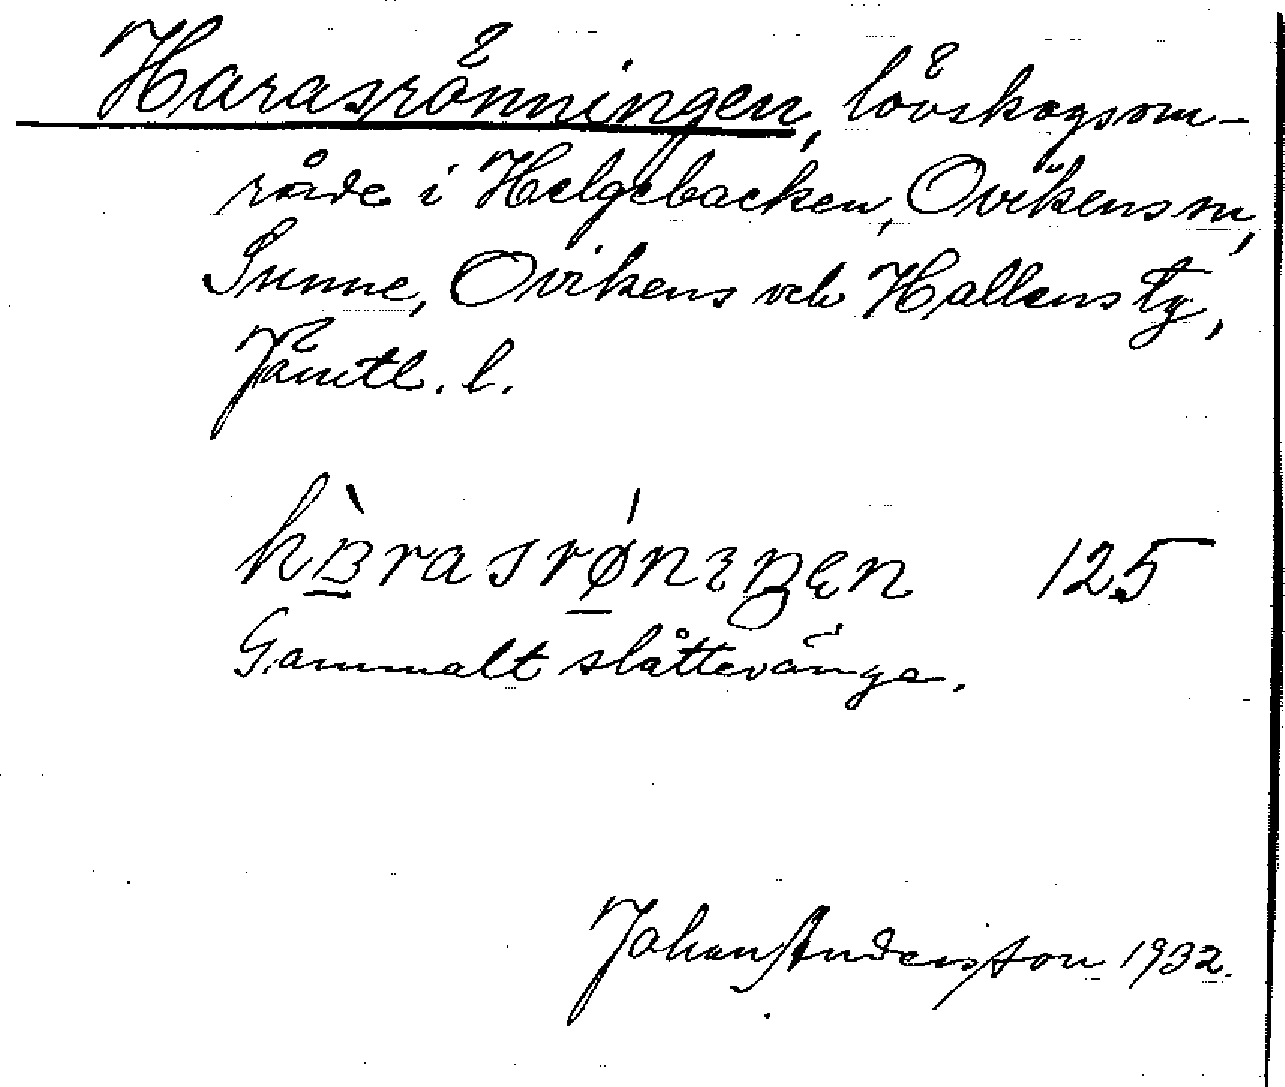 Harasrönningen, lövskogsom-
råde i Helgebacken, Ovikens sn,
Sunne, Ovikens och Hallens tg,
Jämtl. l.
125
Gammalt slåttevänge.
Johan Andersson 1932.